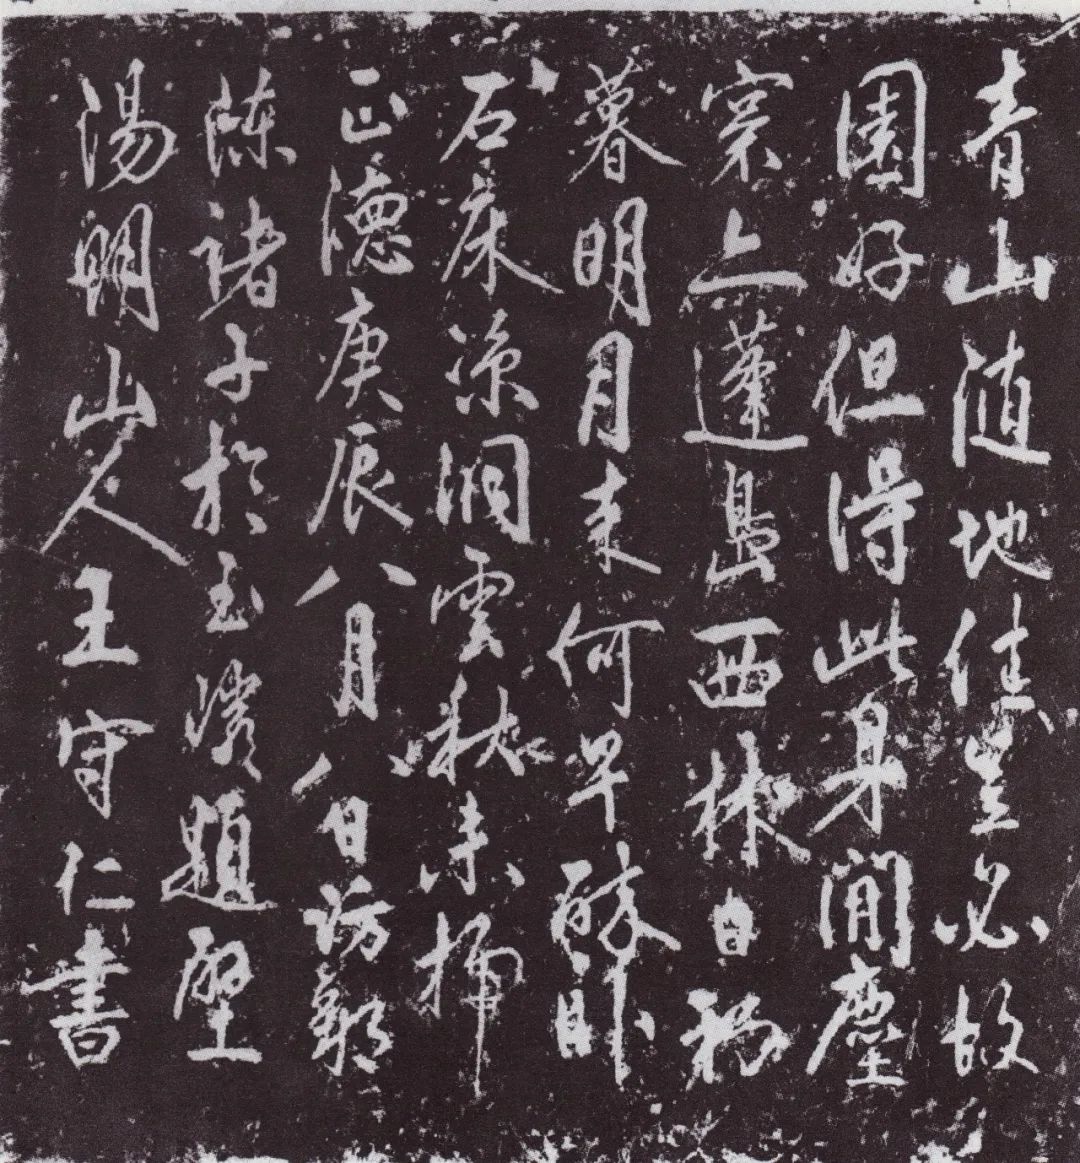 青山随地佳豈必故
園好但得此身閒塵
寰亦蓬島西林日初
暮明月来何早醉卧
石床涼洞雲秋未掃
正德庚辰八月八日訪鄒
陳諸子於玉巖題壁
陽明山人王守仁書